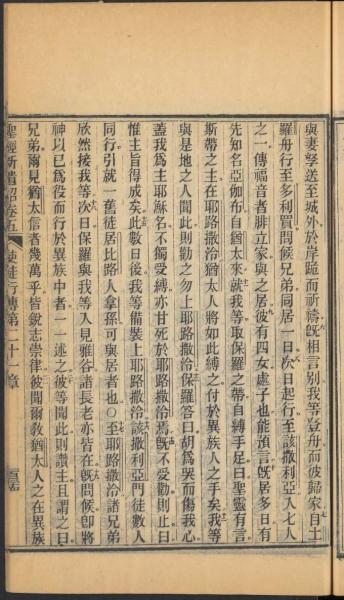 與妻孥送至城外於岸跪而祈禱旣相言別我等登舟而彼歸家自土
羅舟行至多利買問候兄弟同居一日次日起行至該撒利亞入七人
之一傳福音者腓立家與之居彼有四女處子也能預言旣居多日有
先知名亞伽布自猶太來就我等取保羅之帶自縛手足曰聖靈有言
斯帶之主在耶路撒冷猶太人將如此縛之付於異族人之手矣我等
與是地之人聞此則勸之勿上耶路撒冷保羅答曰胡爲哭而傷我心
蓋我爲主耶穌名不獨受縛亦甘死於耶路撒冷焉旣不受勸則止曰
惟主旨得成矣此數日後我等備裝上耶路撒冷該撒利亞門徒數人
同行引就一舊徒居比路人拿孫可與居者也○至耶路撒冷諸兄弟
欣然接我等次日保羅與我等入見雅谷諸長老亦皆在旣問候卽將
神以己爲役而行於異族中者一一述之彼等聞此則讚主且謂之曰
兄弟爾見猶太信者幾萬乎皆銳志崇律彼聞爾教猶太人之在異族
聖經新遺詔卷五 使徒行傳第二十一章